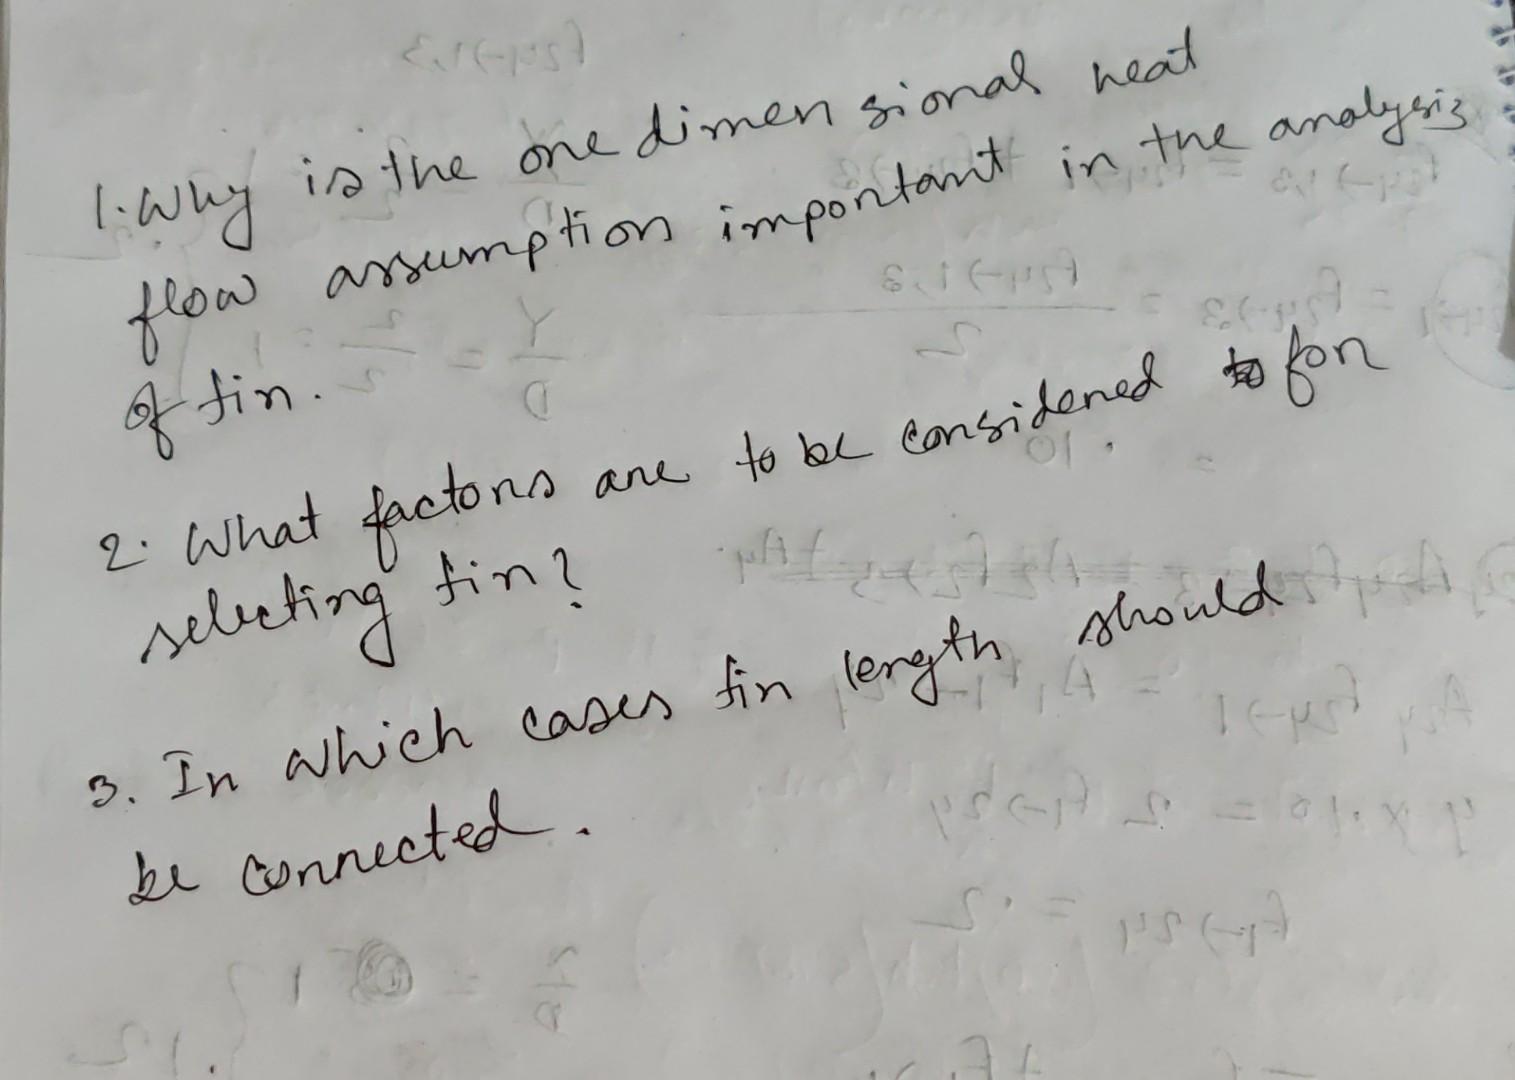 1. Why is the one dimensional heat
flow assumption important in the analysis
of fin.
2. What factors are to be considered for
selecting fin?
3. In which cases fin length should
be connected.